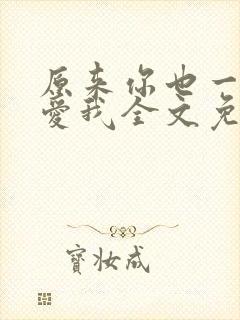 原来你也一
爱我全文免
寳妆成